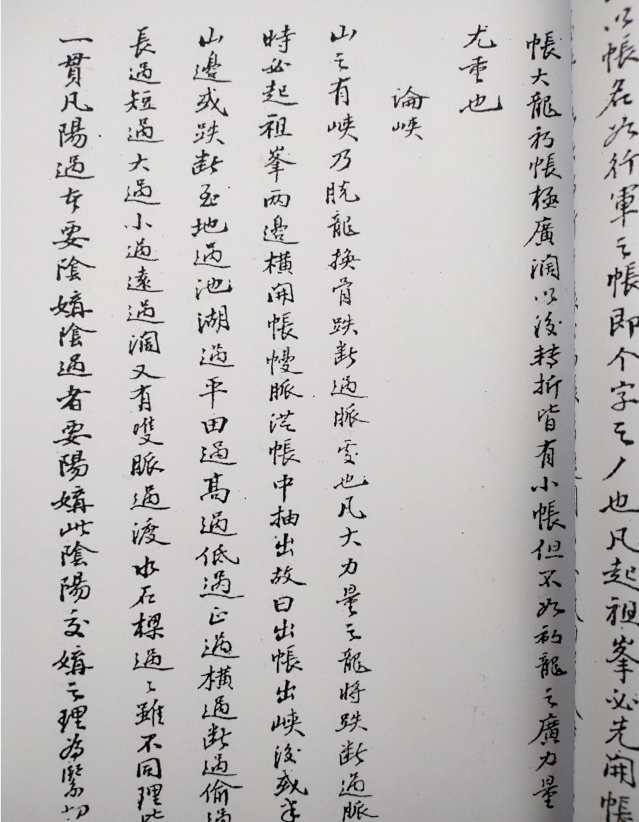 以帳名如行軍之帳即个字之丿也凡起祖峯必先開帳
帳大龍初帳極廣濶以後轉折皆有小帳但不如初龍之廣力量
尤重也
論峽
山之有峽乃脫龍換骨跌斷過脈處也凡大力量之龍將跌斷過脈
時必起祖峯兩邊橫開帳幔脈從帳中抽出故曰出帳出峽後或
山邊或跌斷至地過池湖過平田過高過低過正過橫過斷過偷過
長過短過大過小過遠過濶又有雙脈過渡水石樑過過雖不同理
一貫凡陽過者要陰媾陰過者要陽媾此陰陽交媾之理為緊切